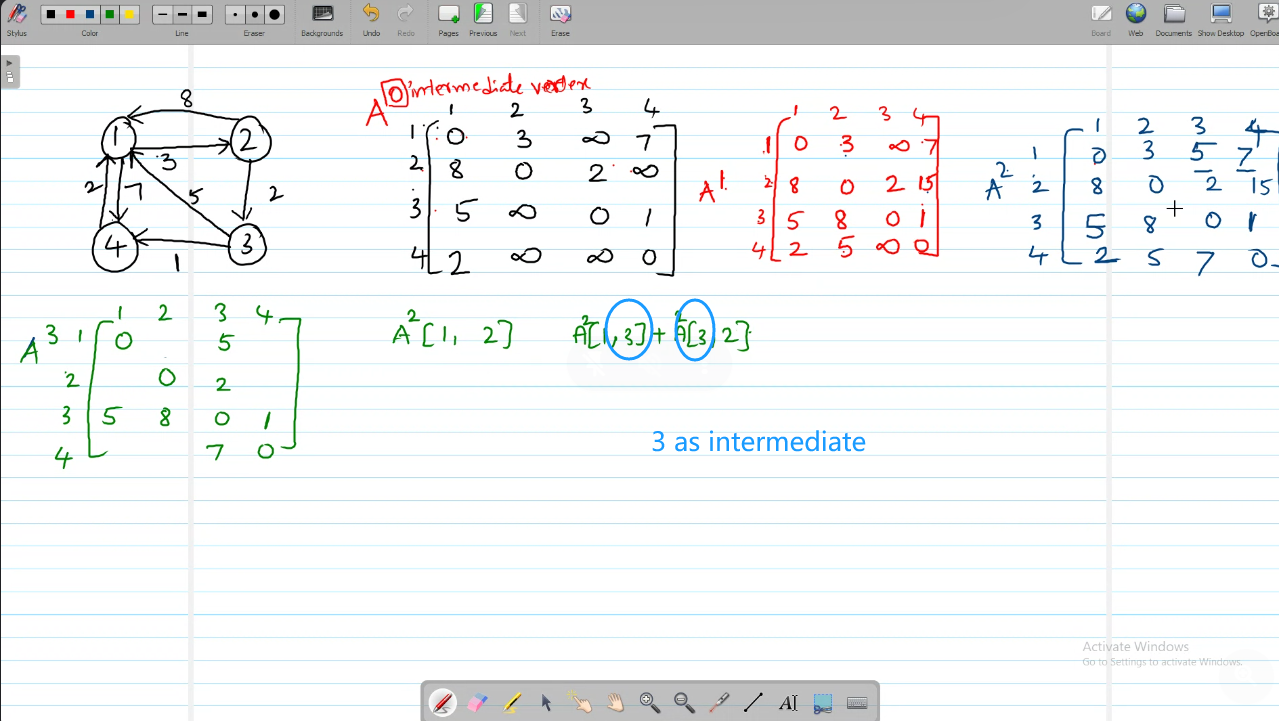 Stylus Color Line Eraser Backgrounds Undo Redo Pages Previous Next Erase Board Web Documents Show Desktop OpenBoa
8
1 2
3
2 7 5 2
4 3
1
A 0 intermediate vertex
1 2 3 4
1 0 3 ∞ 7
2 8 0 2 ∞
3 5 ∞ 0 1
4 2 ∞ ∞ 0
A¹
1 2 3 4
1 0 3 ∞ 7
2 8 0 2 15
3 5 8 0 1
4 2 5 ∞ 0
A²
1 2 3 4
1 0 3 5 7
2 8 0 2 15
3 5 8 0 1
4 2 5 7 0
A³
1 2 3 4
1 0 5
2 0 2
3 5 8 0 1
4 7 0
A²[1, 2] A²[1,3] + A²[3,2]
3 as intermediate
Activate Windows
Go to Settings to activate Windows.
AI